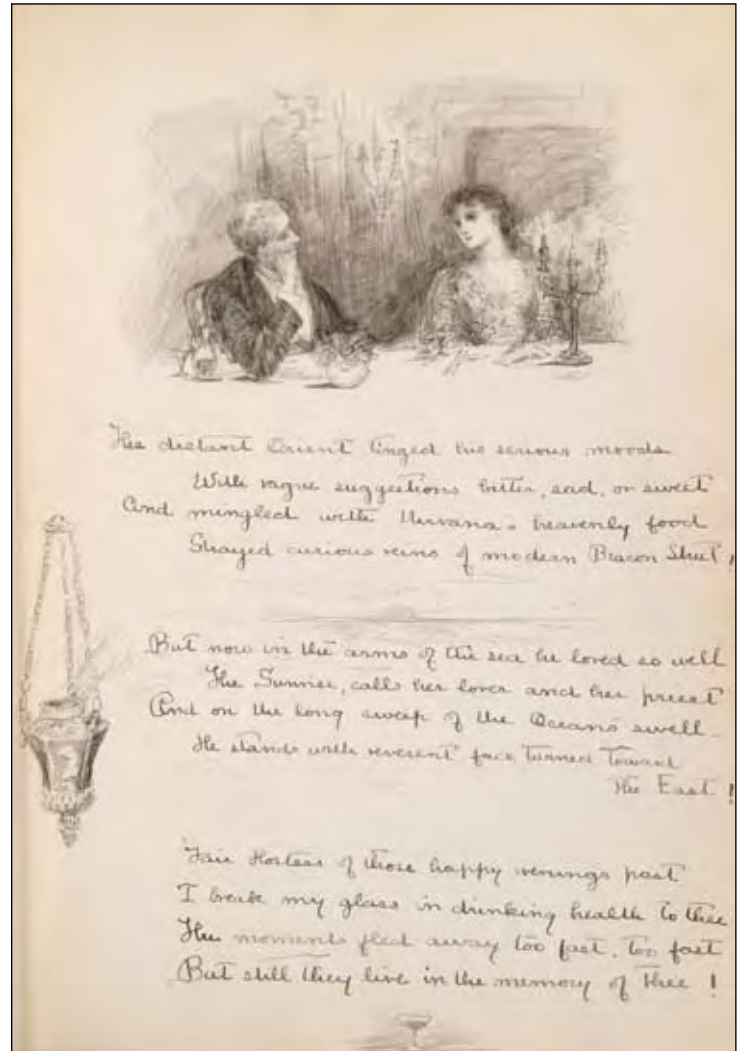 The distant Orient tinged his serious moods
With vague suggestions bitter, sad, or sweet
And mingled with Nirvana's heavenly food
Strayed curious veins of modern Beacon Street!
But now in the arms of the sea he loved so well
The Sunrise, calls her lover and her priest
And on the long sweep of the Oceans swell
He stands with reverent face turned toward
The East!
Fair Hostess of those happy evenings past
I break my glass in drinking health to thee
The moments fled away too fast, too fast
But still they live in the memory of thee!